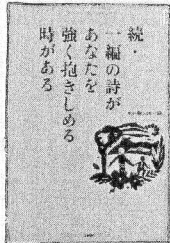 続・
一編の詩が
あなたを
強く抱きしめる
時がある